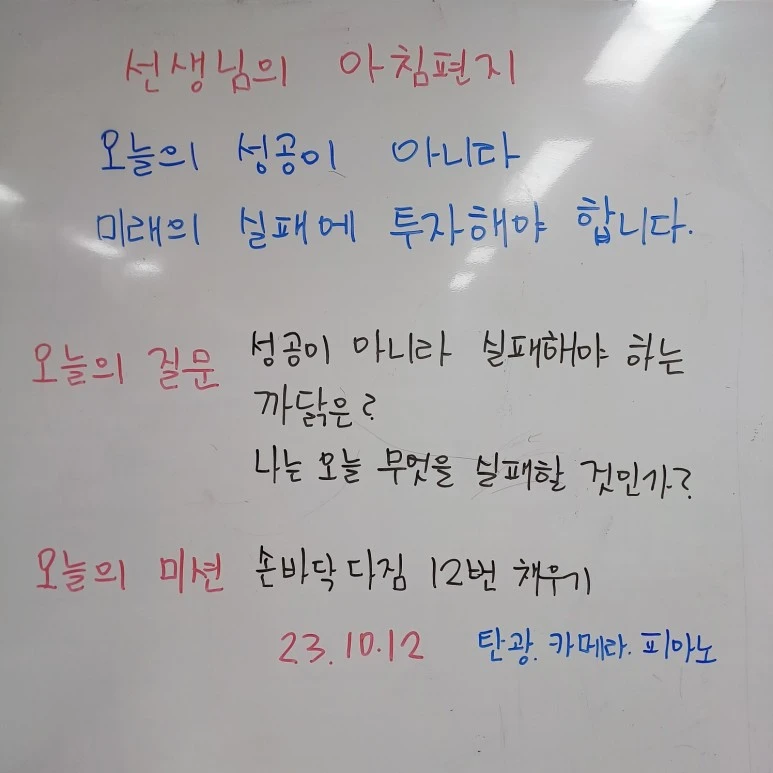 선생님의 아침편지
오늘의 성공이 아니다
미래의 실패에 투자해야 합니다.
오늘의 질문 성공이 아니라 실패해야 하는
까닭은?
나는 오늘 무엇을 실패할 것인가?
오늘의 미션 손바닥 다짐 12번 채우기
23.10.12 탄광. 카메라. 피아노